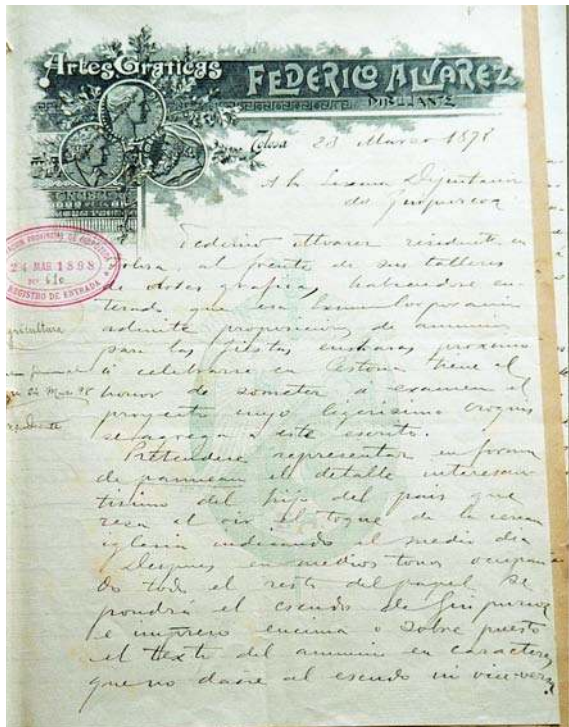 Artes Graficas
FEDERICO ALVAREZ
DIBUJANTE
Tolosa 23 Marzo 1898
A la Excma Diputación
de Guipúzcoa
Federico Alvarez residente en
Tolosa, al frente de sus talleres
de artes graficas, habiendose en
terado que esa Excma Corporación
admite proposiciones de anuncio
para las fiestas euskaras proximas
á celebrarse en Cestona tiene el
honor de someter a examen el
proyecto cuyo ligerisimo croquis
se agrega a este escrito.
Pretendese representar en forma
de panneau el detalle interesan
tisimo del hijo del pais que
reza al oir el toque de la cercana
iglesia indicando el medio dia
Despues en medios tonos ocupan
do todo el resto del papel se
pondrá el escudo de Guipuzcoa
e impreso encima o sobre puesto
el texto del anuncio en caracteres
que no dañe al escudo ni vice-versa
PROVINCIAL DE GUIPUZCOA
24 MAR 1898
REGISTRO DE ENTRADA